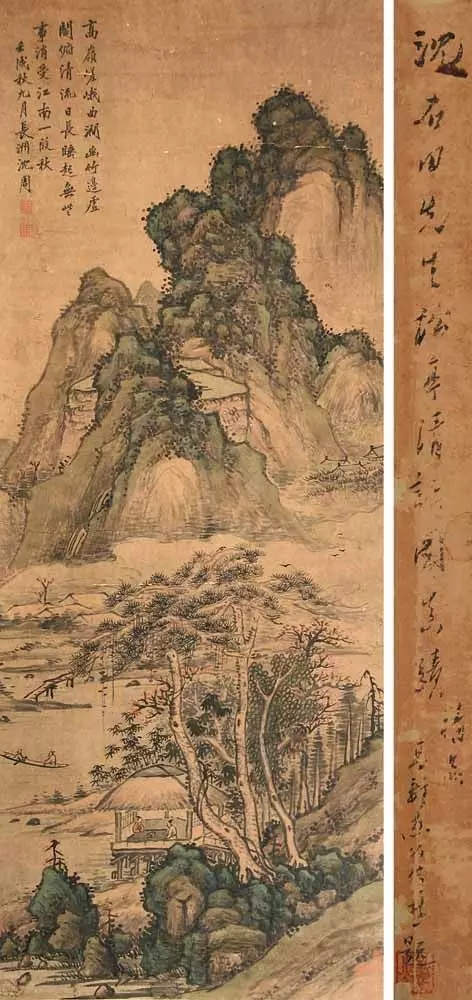 高嶺嵯峨西澗幽竹邊虛
閣俯清流日長睡起無些
事消受江南一段秋
壬戌秋九月長洲沈周
沈石田先生松亭清話圖真蹟
精品
題